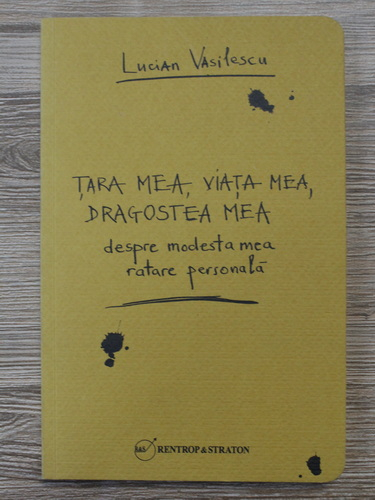 Lucian Vasilescu
ȚARA MEA, VIAȚA MEA,
DRAGOSTEA MEA
despre modesta mea
ratare personală
R&S RENTROP&STRATON